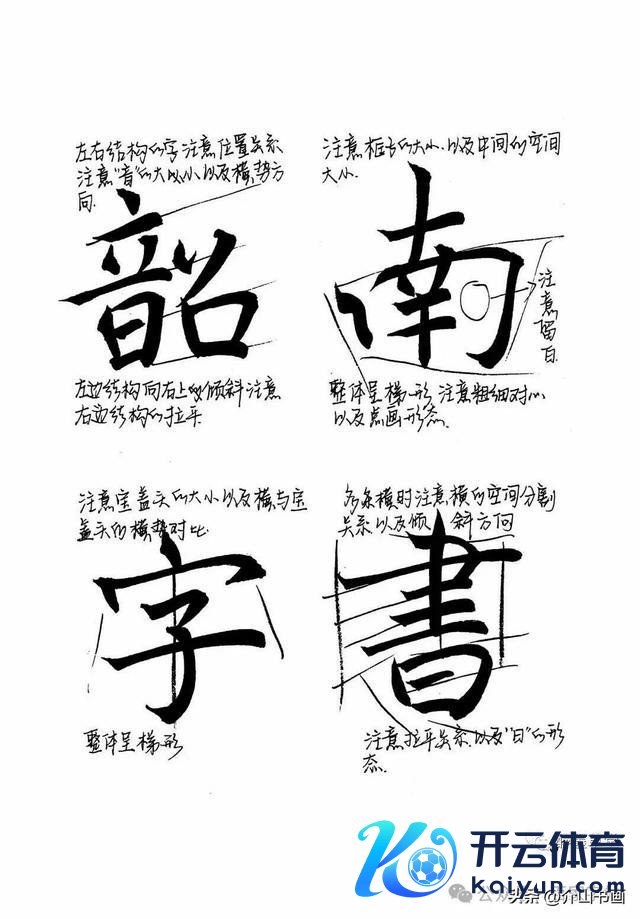 左右结构的字注意位置关系
注意“音”的大以小以及横势方
向.
韶
左边结构向右上倾斜注意
右边结构的拉平.
注意框的大小.以及中间的空间
大小.
南
注意留白.
整体呈梯形 注意粗细对比
以及点画形态.
注意宝盖头的大小以及横与宝
盖头的横势对比.
字
整体呈梯形
多条横时注意横的空间分割
关系以及倾斜方向
書
注意拉平关系.以及“日”的形
态.
开云体育
kaiyun.com
头条@介山书画